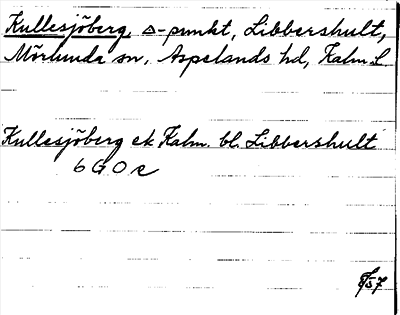 Kullesjöberg, △-punkt, Libbershult,
Mörlunda sn, Aspelands hd, Kalm. L.
Kullesjöberg ek Kalm. bl. Libbershult
6G0e